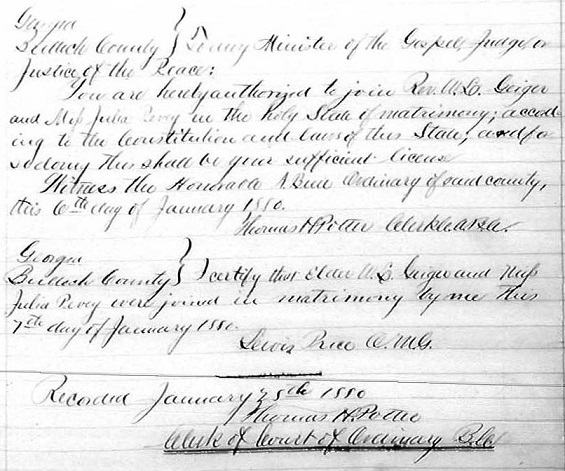 Georgia
Bulloch County } To any Minister of the Gospel, Judge or
Justice of the Peace:
You are hereby authorized to join Rev. W. L. Geiger
and Miss Julia Pevey in the holy State of matrimony; accord-
ing to the Constitution and laws of this State, and for
so doing this shall be your sufficient license
Witness the Honorable Ordinary of said county,
this 6th day of January 1880.
Thomas H Potter Clerk
Georgia
Bulloch County } I certify that Elder W. L. Geiger and Miss
Julia Pevey were joined in matrimony by me this
7th day of January 1880.
Lewis Price O. M. G.
Recorded January 25th 1880
Thomas H. Potter
Clerk of Court of Ordinary B. C.